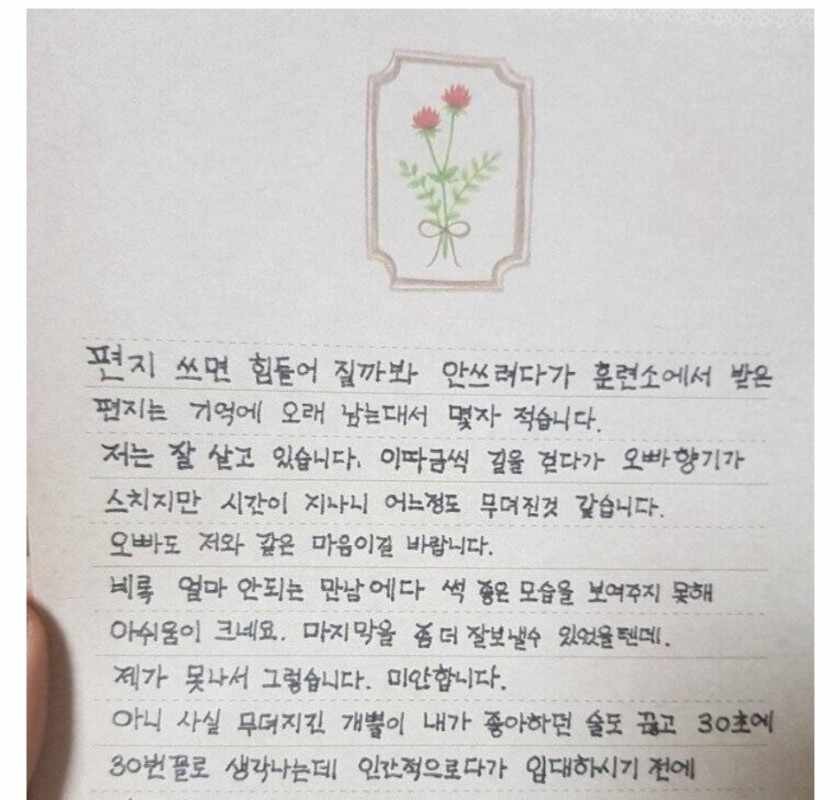 편지 쓰면 힘들어 질까봐 안쓰려다가 훈련소에서 받은
편지는 기억에 오래 남는대서 몇자 적습니다.
저는 잘 살고 있습니다. 이따금씩 길을 걷다가 오빠향기가
스치지만 시간이 지나니 어느정도 무뎌진것 같습니다.
오빠도 저와 같은 마음이길 바랍니다.
비록 얼마 안되는 만남에다 썩 좋은 모습을 보여주지 못해
아쉬움이 크네요. 마지막을 좀 더 잘보낼수 있었을텐데.
제가 못나서 그렇습니다. 미안합니다.
아니 사실 무뎌지긴 개뿔이 내가 좋아하던 술도 끊고 30초에
30번꼴로 생각나는데 인간적으로다가 입대하시기 전에